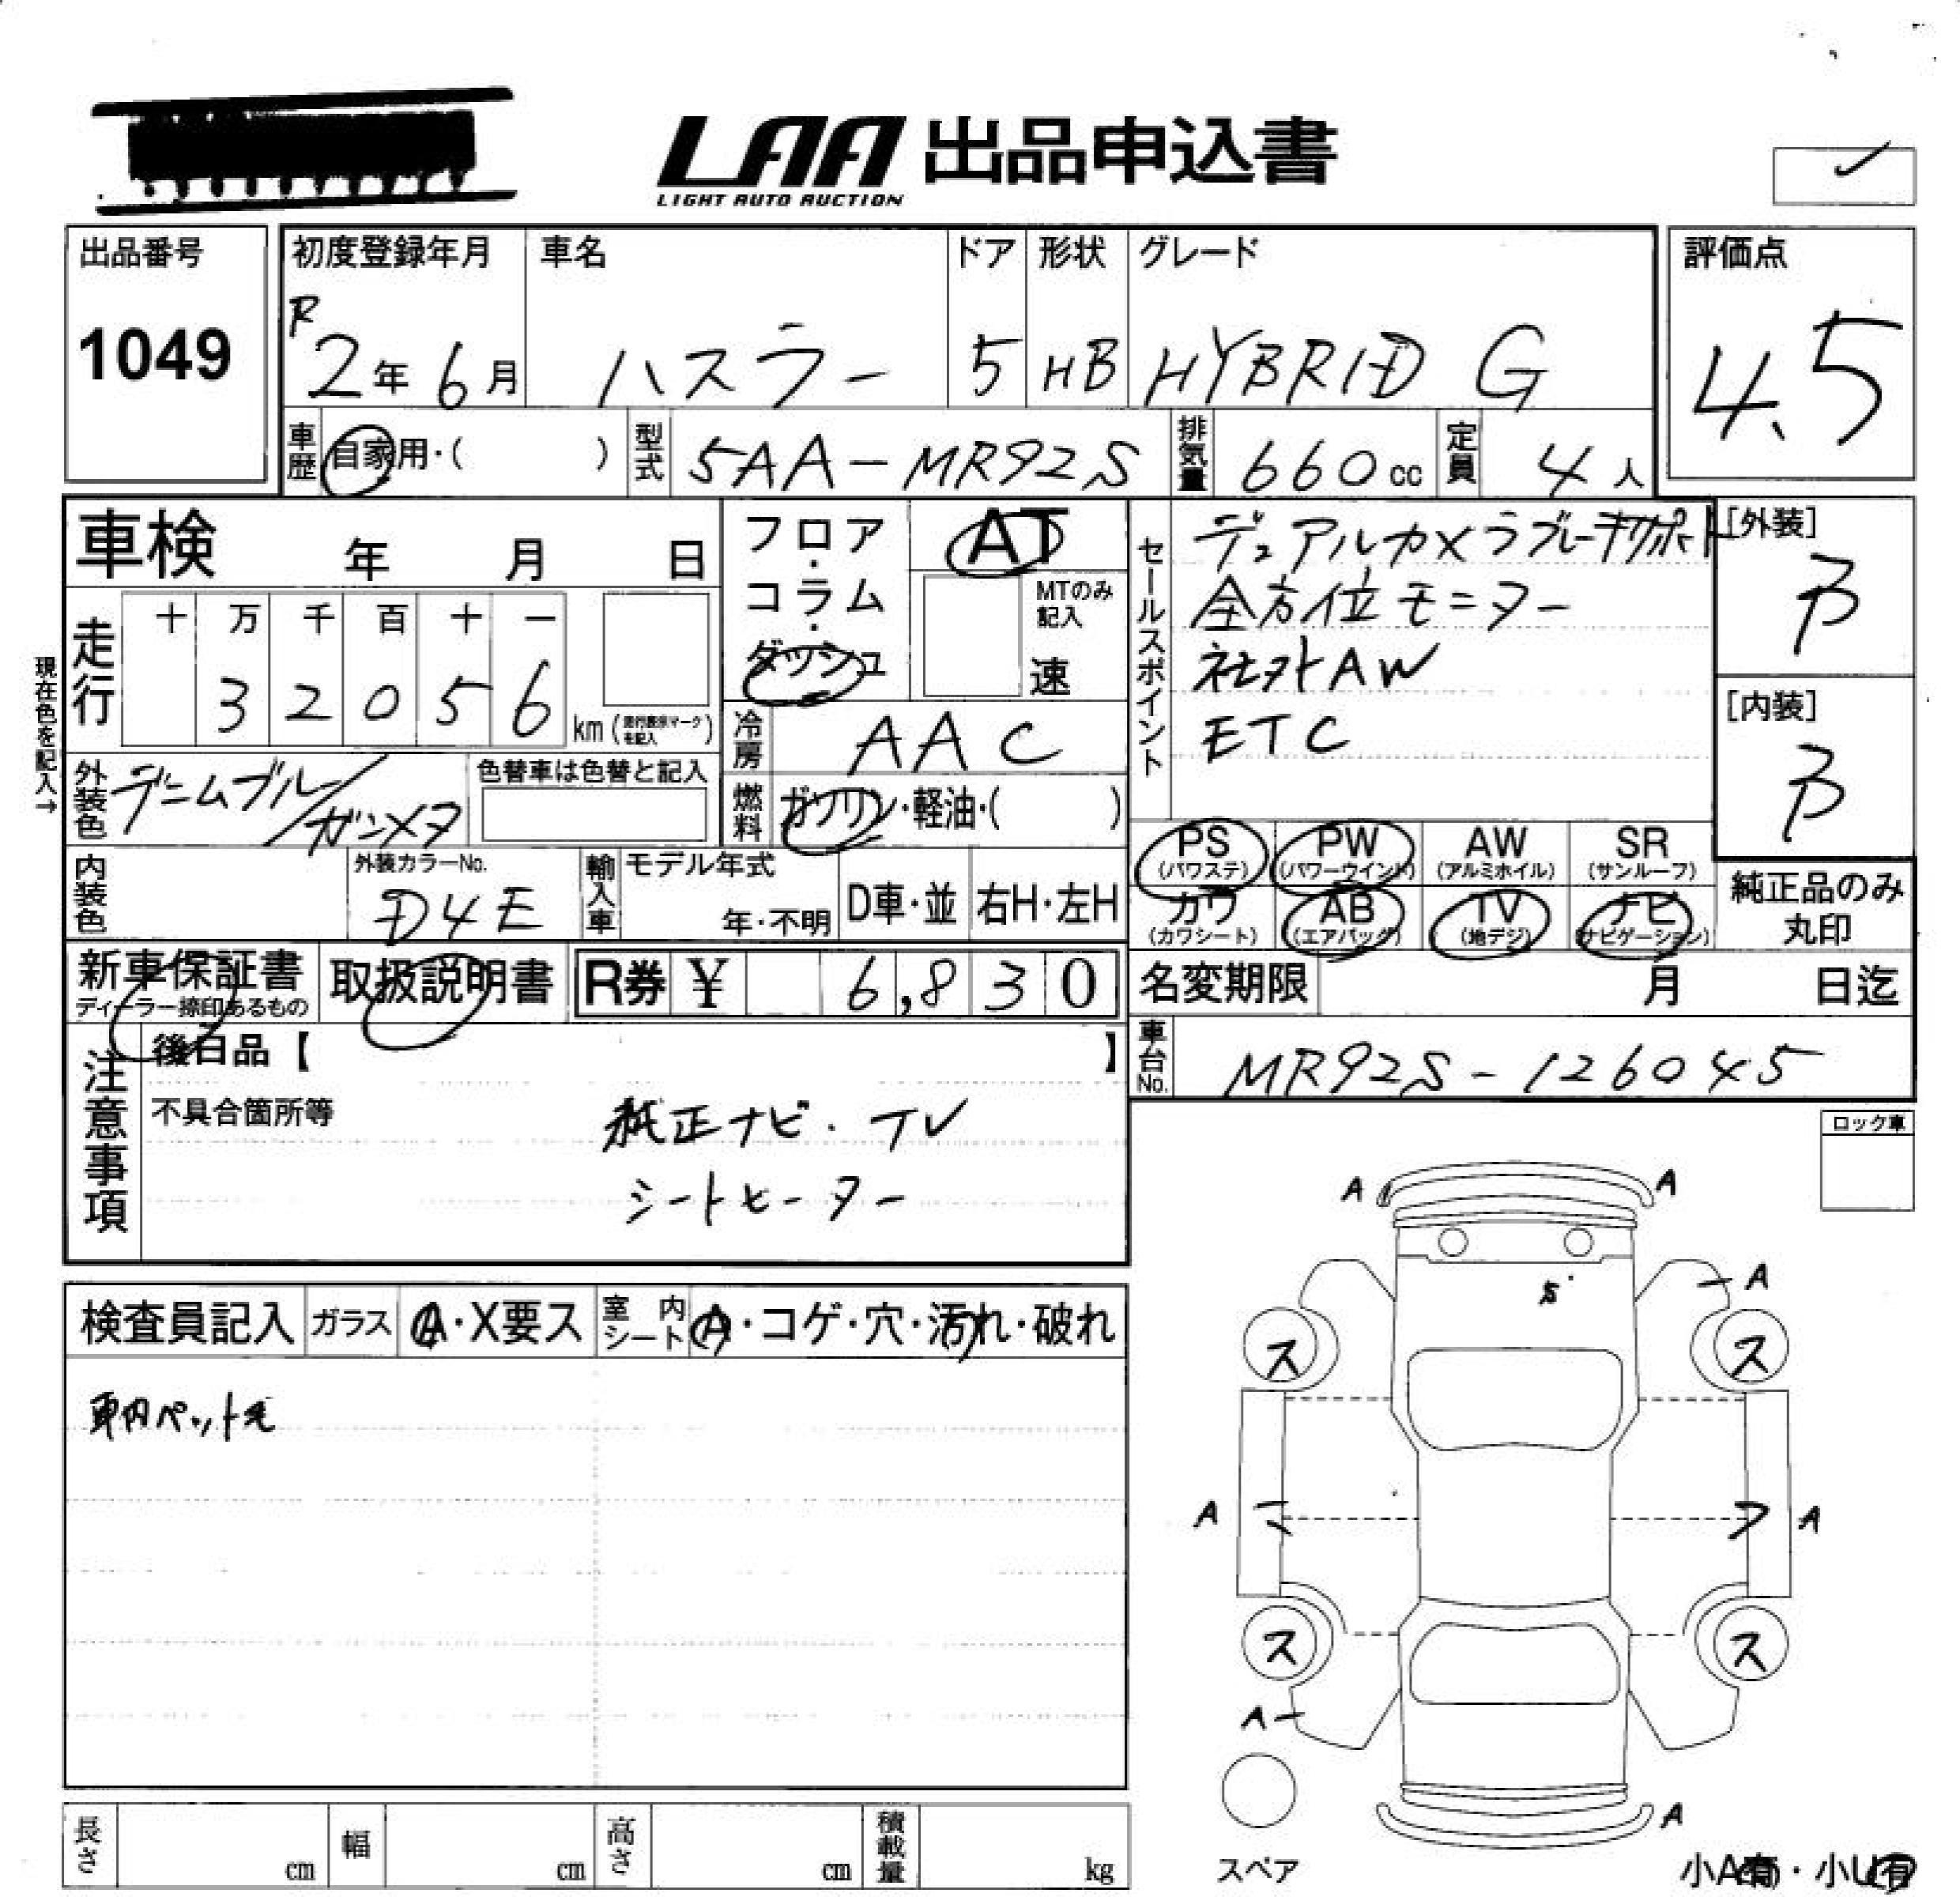 LAA 出品申込書
LIGHT AUTO AUCTION
出品番号
1049
初度登録年月 車名 ドア 形状 グレード
R2年6月 ハスラー 5 HB HYBRID G
評価点
4.5
車歴 自家用・( ) 型式 5AA-MR92S 排気量 660cc 定員 4人
車検 年 月 日
フロア・コラム・ダッシュ
AT
MTのみ記入
速
現在色を記入→
走行 十 万 千 百 十 一
3 2 0 5 6 km (走行表示マークを記入)
冷房 AAC
燃料 ガソリン・軽油・( )
セールスポイント
デュアルカメラブレーキサポート
全方位モニター
社外AW
ETC
[外装]
B
[内装]
B
外装色 デニムブルー/ガンメタ
色替車は色替と記入
内装色
外装カラーNo.
D4E
輸入車 モデル年式
年・不明 D車・並 右H・左H
PS AW PW SR
(パワステ) (パワーウインド) (アルミホイル) (サンルーフ)
カワ AB TV ナビ
(カワシート) (エアバッグ) (地デジ) (ナビゲーション)
純正品のみ
丸印
新車保証書
ディーラー捺印あるもの
取扱説明書
R券 ¥ 6,830
名変期限 月 日迄
車台No. MR92S-126045
注意事項
後日品【 】
不具合箇所等
純正ナビ・TV
シートヒーター
ロック車
検査員記入 ガラス A・X要ス 室内シート A・コゲ・穴・汚れ・破れ
車内ペット毛
A A
S
A
ス ス
A A
ス ス
A
A
スペア
小A有・小U有
長さ cm 幅 cm 高さ cm 積載量 kg